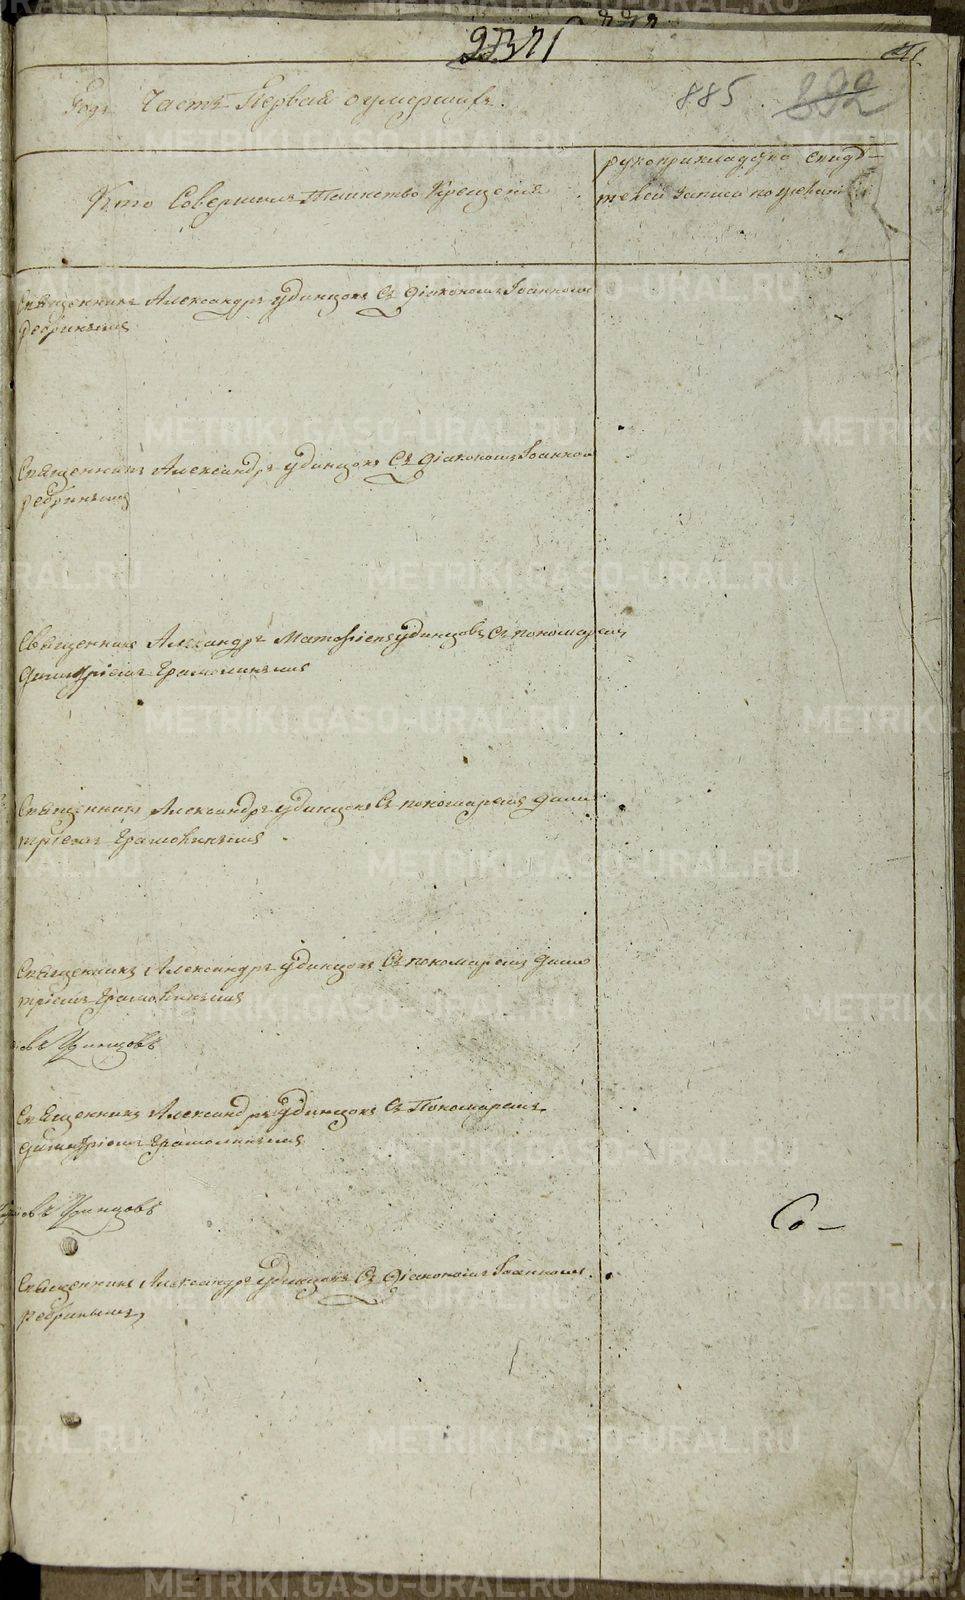 2371
Годъ Часть Первая о умершихъ.
885 892
Кто Совершилъ Таинство Крещенія
рукоприкладство свидѣ-
телей записи по желанію
Священникъ Александръ Удинцовъ Съ діакономъ Іоанномъ
Ребринымъ
Священникъ Александръ Удинцовъ Съ діакономъ Іоанномъ
Ребринымъ
Священникъ Александръ Матѳіевъ Удинцовъ Съ пономаремъ
Димитріемъ
Священникъ Александръ Удинцовъ Съ пономаремъ Дими
тріемъ
Священникъ Александръ Удинцовъ Съ пономаремъ Дими
тріемъ
овъ Удинцовъ
Священникъ Александръ Удинцовъ Съ Пономаремъ
Димитріемъ
овъ Удинцовъ
Со-
Священникъ Александръ Удинцовъ Съ Діакономъ Іоанномъ
Ребринымъ
METRIKI.GASO-URAL.RU